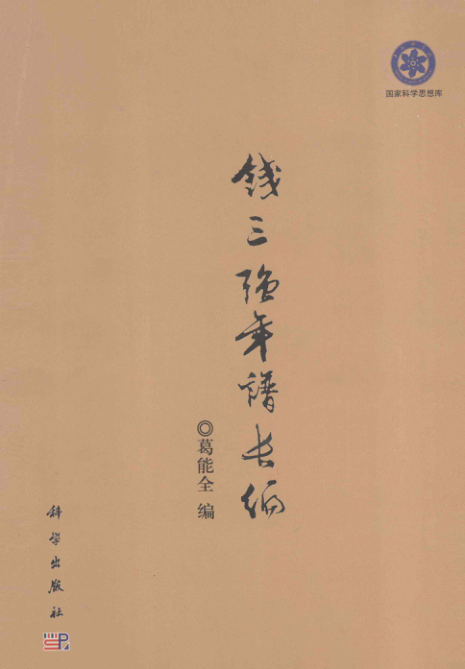 国家科学思想库
钱三强年谱长编
◎葛能全 编
科学出版社